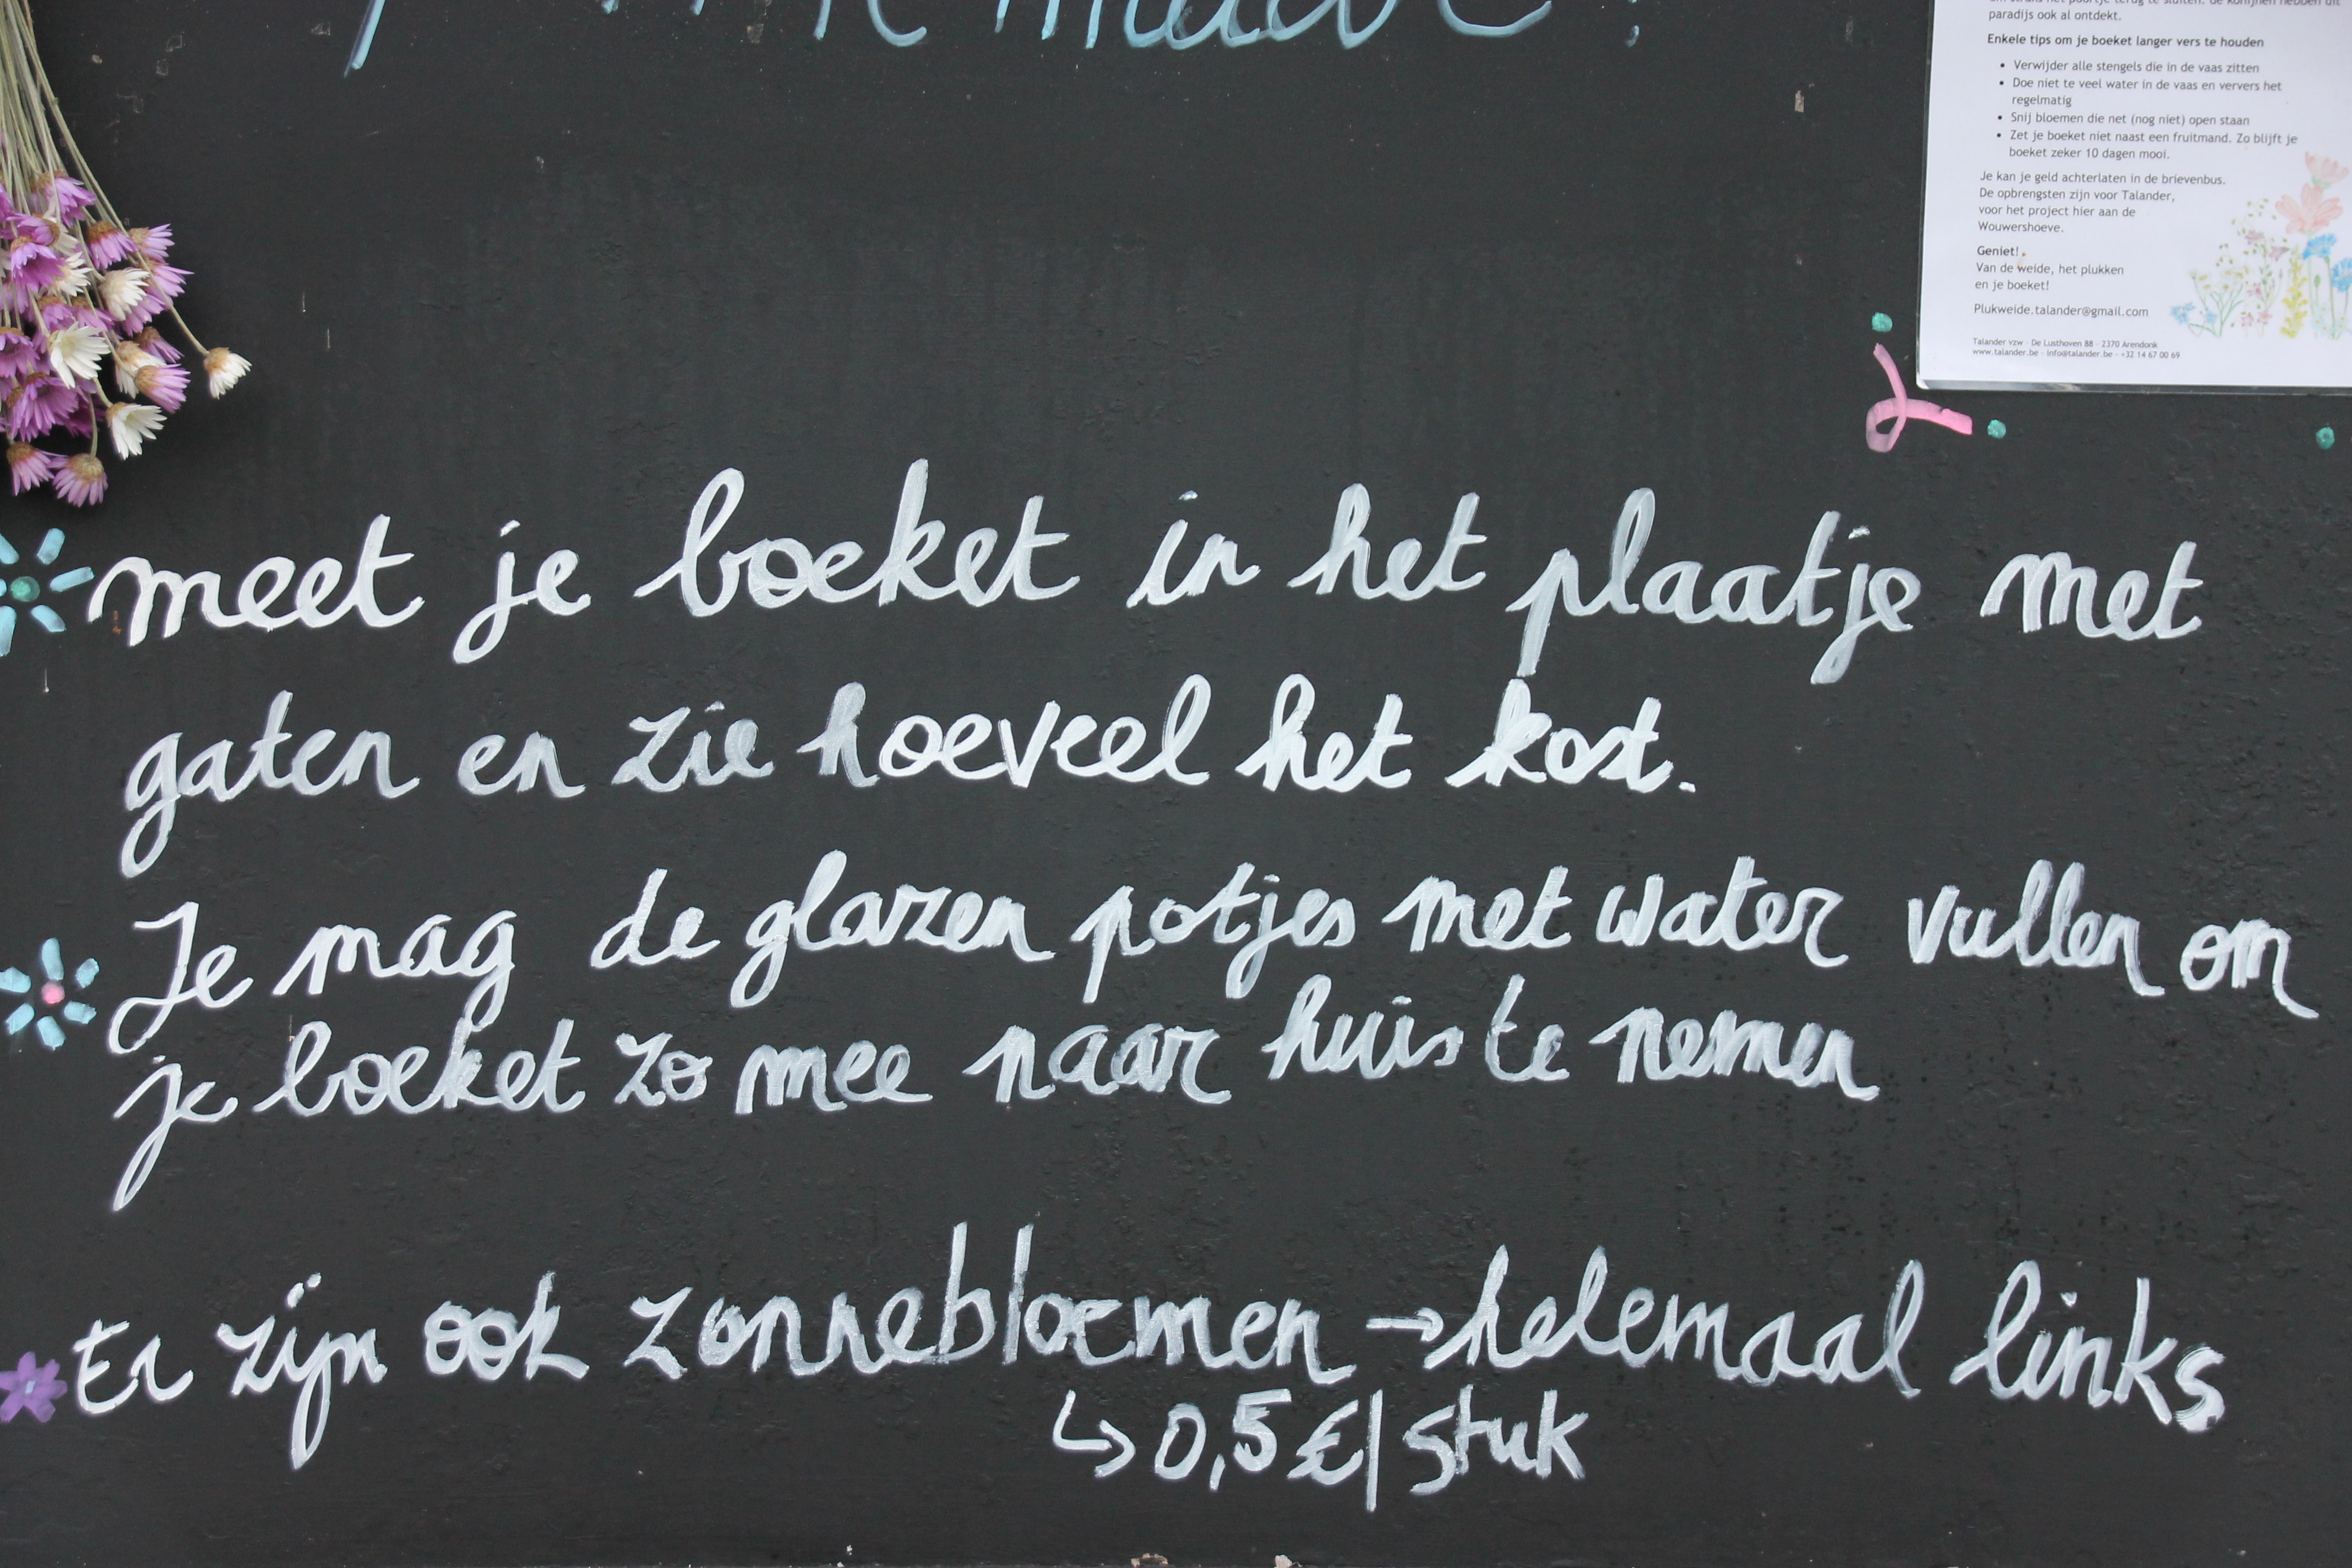 paradijs ook al ontdekt.
Enkele tips om je boeket langer vers te houden
• Verwijder alle stengels die in de vaas zitten
• Doe niet te veel water in de vaas en ververs het
regelmatig
• Snij bloemen die net (nog niet) open staan
• Zet je boeket niet naast een fruitmand. Zo blijft je
boeket zeker 10 dagen mooi.
Je kan je geld achterlaten in de brievenbus.
De opbrengsten zijn voor Talander,
voor het project hier aan de
Wouwershoeve.
Geniet!
Van de weide, het plukken
en je boeket!
Plukweide.talander@gmail.com
Talander vzw - De Lusthoven 88 - 2370 Arendonk
www.talander.be - info@talander.be - +32 14 67 00 69
meet je boeket in het plaatje met
gaten en zie hoeveel het kost.
Je mag de glazen potjes met water vullen om
je boeket zo mee naar huis te nemen
Er zijn ook zonnebloemen → helemaal links
↳ 0,5 €/stuk